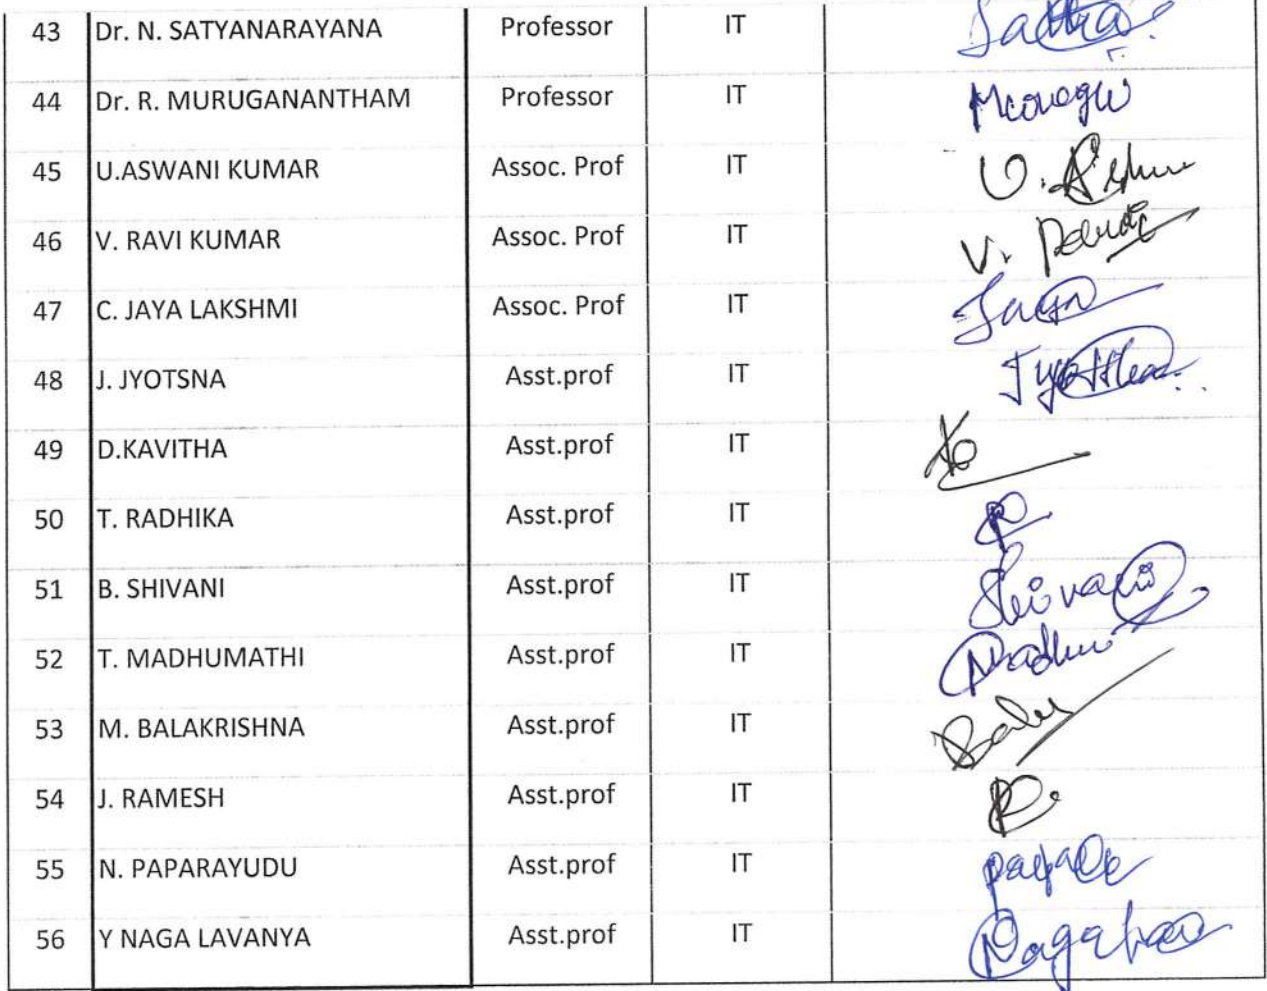 43 Dr. N. SATYANARAYANA Professor IT
44 Dr. R. MURUGANANTHAM Professor IT
45 U.ASWANI KUMAR Assoc. Prof IT
46 V. RAVI KUMAR Assoc. Prof IT
47 C. JAYA LAKSHMI Assoc. Prof IT
48 J. JYOTSNA Asst.prof IT
49 D.KAVITHA Asst.prof IT
50 T. RADHIKA Asst.prof IT
51 B. SHIVANI Asst.prof IT Shivani
52 T. MADHUMATHI Asst.prof IT Madhu
53 M. BALAKRISHNA Asst.prof IT
54 J. RAMESH Asst.prof IT
55 N. PAPARAYUDU Asst.prof IT
56 Y NAGA LAVANYA Asst.prof IT